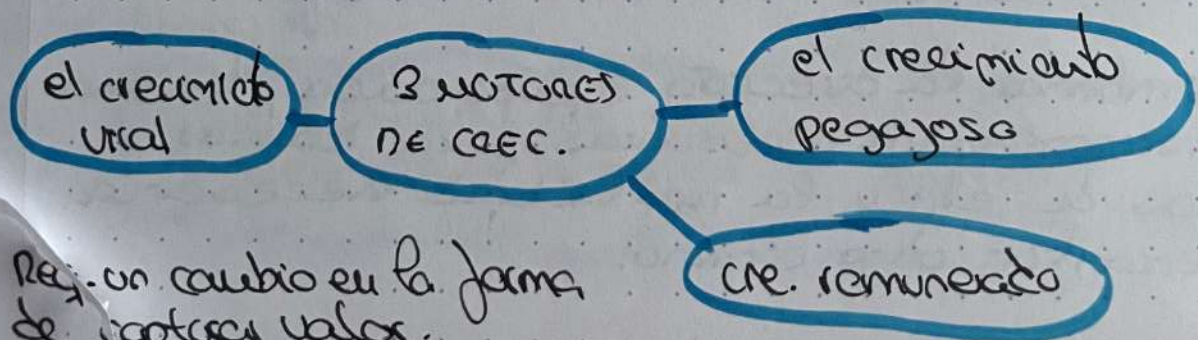 el crecimiento
viral
3 MOTORES
DE CREC.
el crecimiento
pegajoso
cre. remunerado
Req. un cambio en la forma
de captar valor.